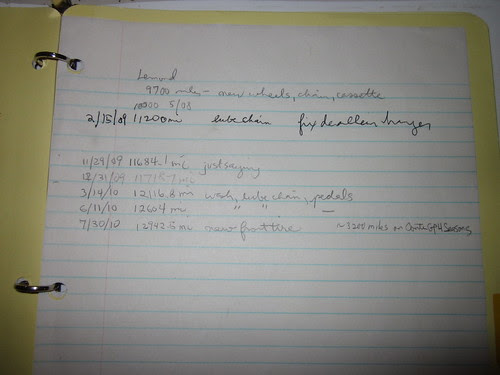 Lemond
9700 miles - new wheels, chain, cassette
10000 5/08
2/15/09 11200 mi lube chain fix derailleur hanger
11/29/09 11684.1 mi just saying
12/31/09 11715.7 mi
3/14/10 12116.8 mi wash, lube chain, pedals
6/11/10 12604 mi " " —
7/30/10 12942.5 mi new front tire ~3200 miles on Conti GP4Seasons